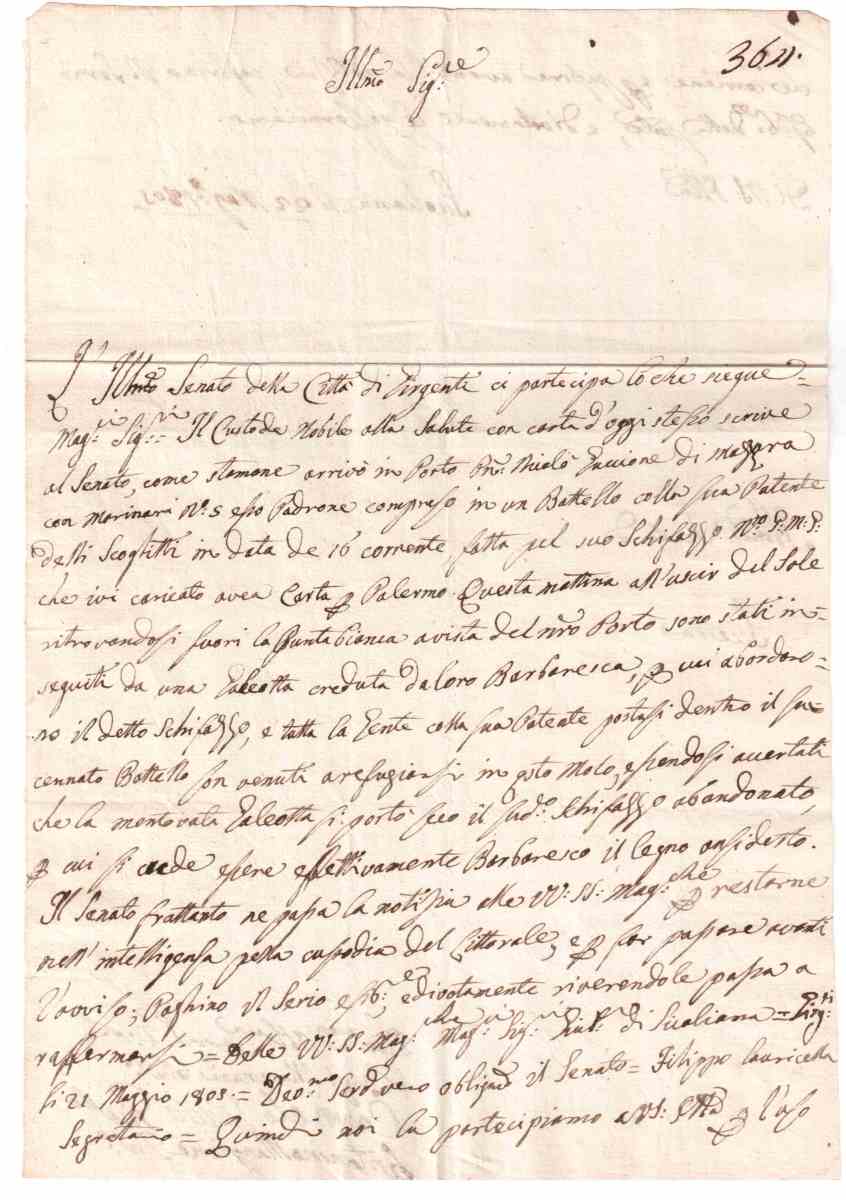 364.
Illmo Sig:re
L' Illmo Senato della Città di Girgenti ci partecipa lo che segue =
Mag:ci Sig:ri = Il Custode Nobile alla Salute con carta d'oggi stesso scrive
al Senato, come stamane arrivò in Porto Pne Nicolò Giaccione di Mazzara
con marinari N: 5 esso Padrone compreso in un Battello colla sua Patente
delli Scoglitti in data de 16 corrente, fatta pel suo Schifazzo
che ivi caricato avea Carta p Palermo. Questa mattina all'uscir del Sole
ritrovandosi fuori la Punta bianca a vista del nro Porto sono stati in=
seguiti da una Galeotta creduta da loro Barbaresca, p cui abordoro=
no il detto Schifazzo, e tutta la Gente colla sua Patente postasi dentro il su=
cennato Battello son venuti a refugiarsi in qsto Molo, essendosi avertati
che la mentovata Galeotta si portò seco il sud:o Schifazzo abandonato,
p cui si crede essere effettivamente Barbaresco il legno ansidetto.
Il Senato frattanto ne passa la notizia alle VV: SS: Mag:che p restarne
nell'intelligenza pella custodia del Littorale, e p far passare avanti
l'avviso; Paghino il Serio essib:re, e divotamente riverendole passa a
raffermarsi = Delle VV: SS: Mag:che Mag:ci Sig:ri Giur:ti di Siculiana = Girg:ti
li 21 Maggio 1805 = Devo:mo Serd vero obligmo il Senato = Filippo Lauricella
Segretario = Quindi noi la partecipiamo a VS: Illma p l'uso